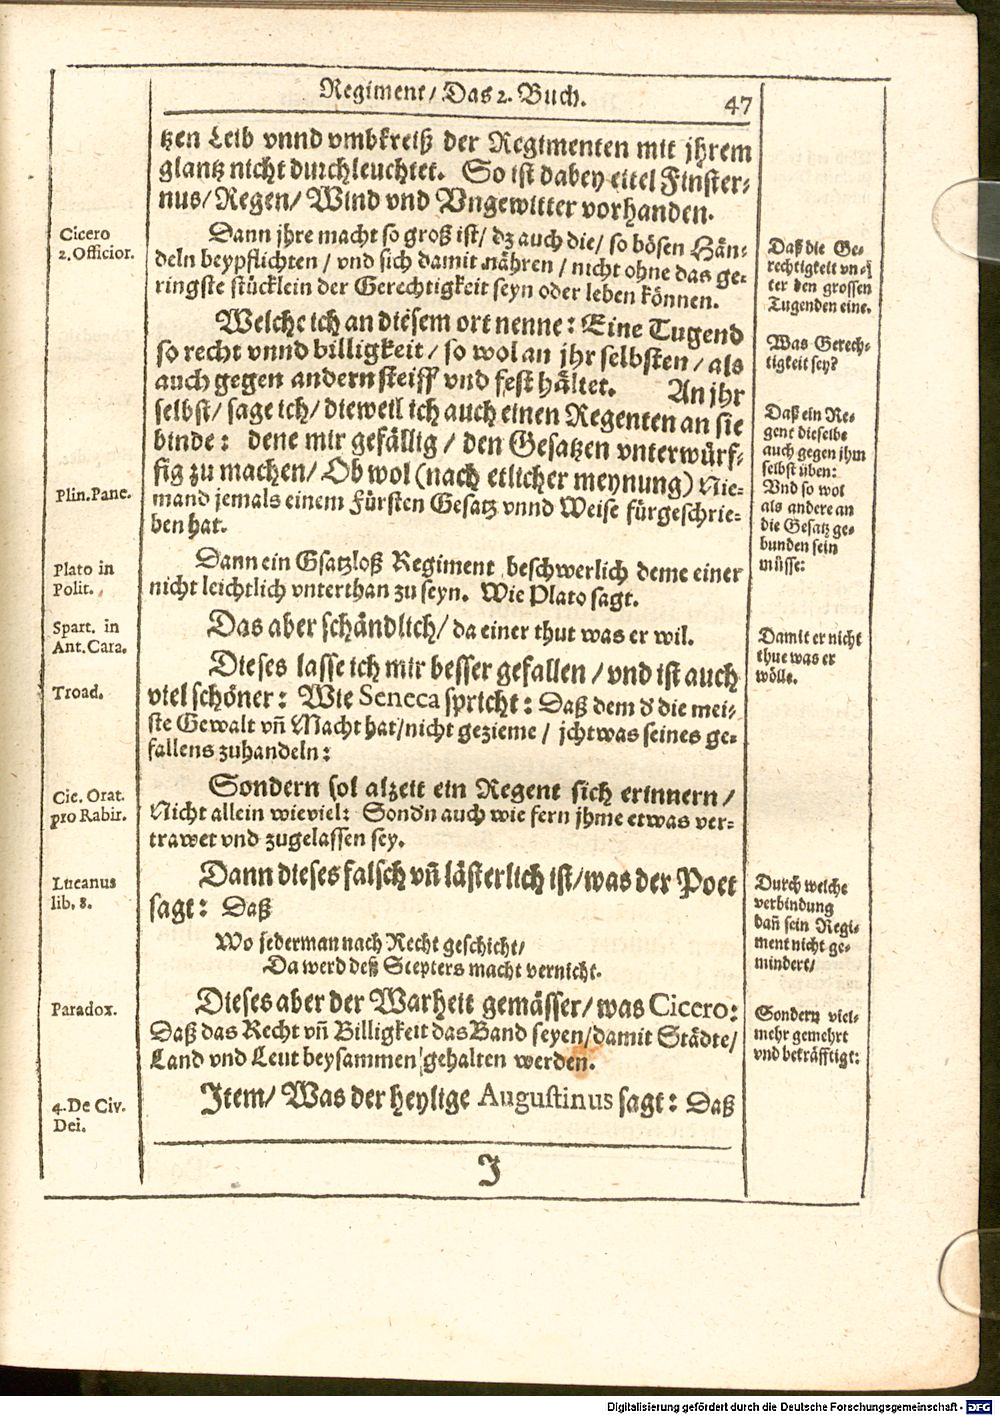 Regiment/ Das 2. Buch.
47
tzen Leib vnnd vmbkreiß der Regimenten mit jhrem
glantz nicht durchleuchtet. So ist dabey eitel Finster-
nus/ Regen/ Wind vnd Vngewitter vorhanden.
Cicero
2. Officior.
Dann jhre macht so groß ist/ dz auch die/ so bösen Hän-
deln beypflichten / vnd sich damit nähren / nicht ohne das ge-
ringste stücklein der Gerechtigkeit seyn oder leben können.
Daß die Ge-
rechtigkeit vn-
ter den grossen
Tugenden eine.
Welche ich an diesem ort nenne: Eine Tugend
so recht vnnd billigkeit / so wol an jhr selbsten / als
auch gegen andern steiff vnd fest hältet. An jhr
selbst/ sage ich/ dieweil ich auch einen Regenten an sie
binde: dene mir gefällig / den Gesatzen vnterwürf-
fig zu machen/ Ob wol (nach etlicher meynung) Nie-
mand jemals einem Fürsten Gesatz vnnd Weise fürgeschrie-
ben hat.
Was Gerech-
tigkeit sey?
Daß ein Re-
gent dieselbe
auch gegen ihm
selbst üben:
Vnd so wol
als andere an
die Gesatz ge-
bunden sein
müsse:
Plin. Pane.
Plato in
Polit.
Dann ein Gsatzloß Regiment beschwerlich deme einer
nicht leichtlich vnterthan zu seyn. Wie Plato sagt.
Spart. in
Ant. Cara.
Das aber schändlich/ da einer thut was er wil.
Damit er nicht
thue was er
wölle.
Dieses lasse ich mir besser gefallen / vnd ist auch
viel schöner: Wie Seneca spricht: Daß dem d' die mei-
ste Gewalt vñ Macht hat/ nicht gezieme / jchtwas seines ge-
fallens zuhandeln:
Troad.
Cic. Orat.
pro Rabir.
Sondern sol alzeit ein Regent sich erinnern /
Nicht allein wieviel: Sond'n auch wie fern jhme etwas ver-
trawet vnd zugelassen sey.
Lucanus
lib. 8.
Dann dieses falsch vñ lästerlich ist/ was der Poet
sagt: Daß
Wo jederman nach Recht geschicht/
Da werd deß Scepters macht vernicht.
Durch welche
verbindung
dañ sein Regi-
ment nicht ge-
mindert/
Paradox.
Dieses aber der Warheit gemässer/ was Cicero:
Daß das Recht vñ Billigkeit das Band seyen/ damit Städte/
Land vnd Leut beysammen gehalten werden.
Sondern viel-
mehr gemehrt
vnd bekräfftigt:
4. De Civ.
Dei.
Item/ Was der heylige Augustinus sagt: Daß
J
Digitalisierung gefördert durch die Deutsche Forschungsgemeinschaft - DFG